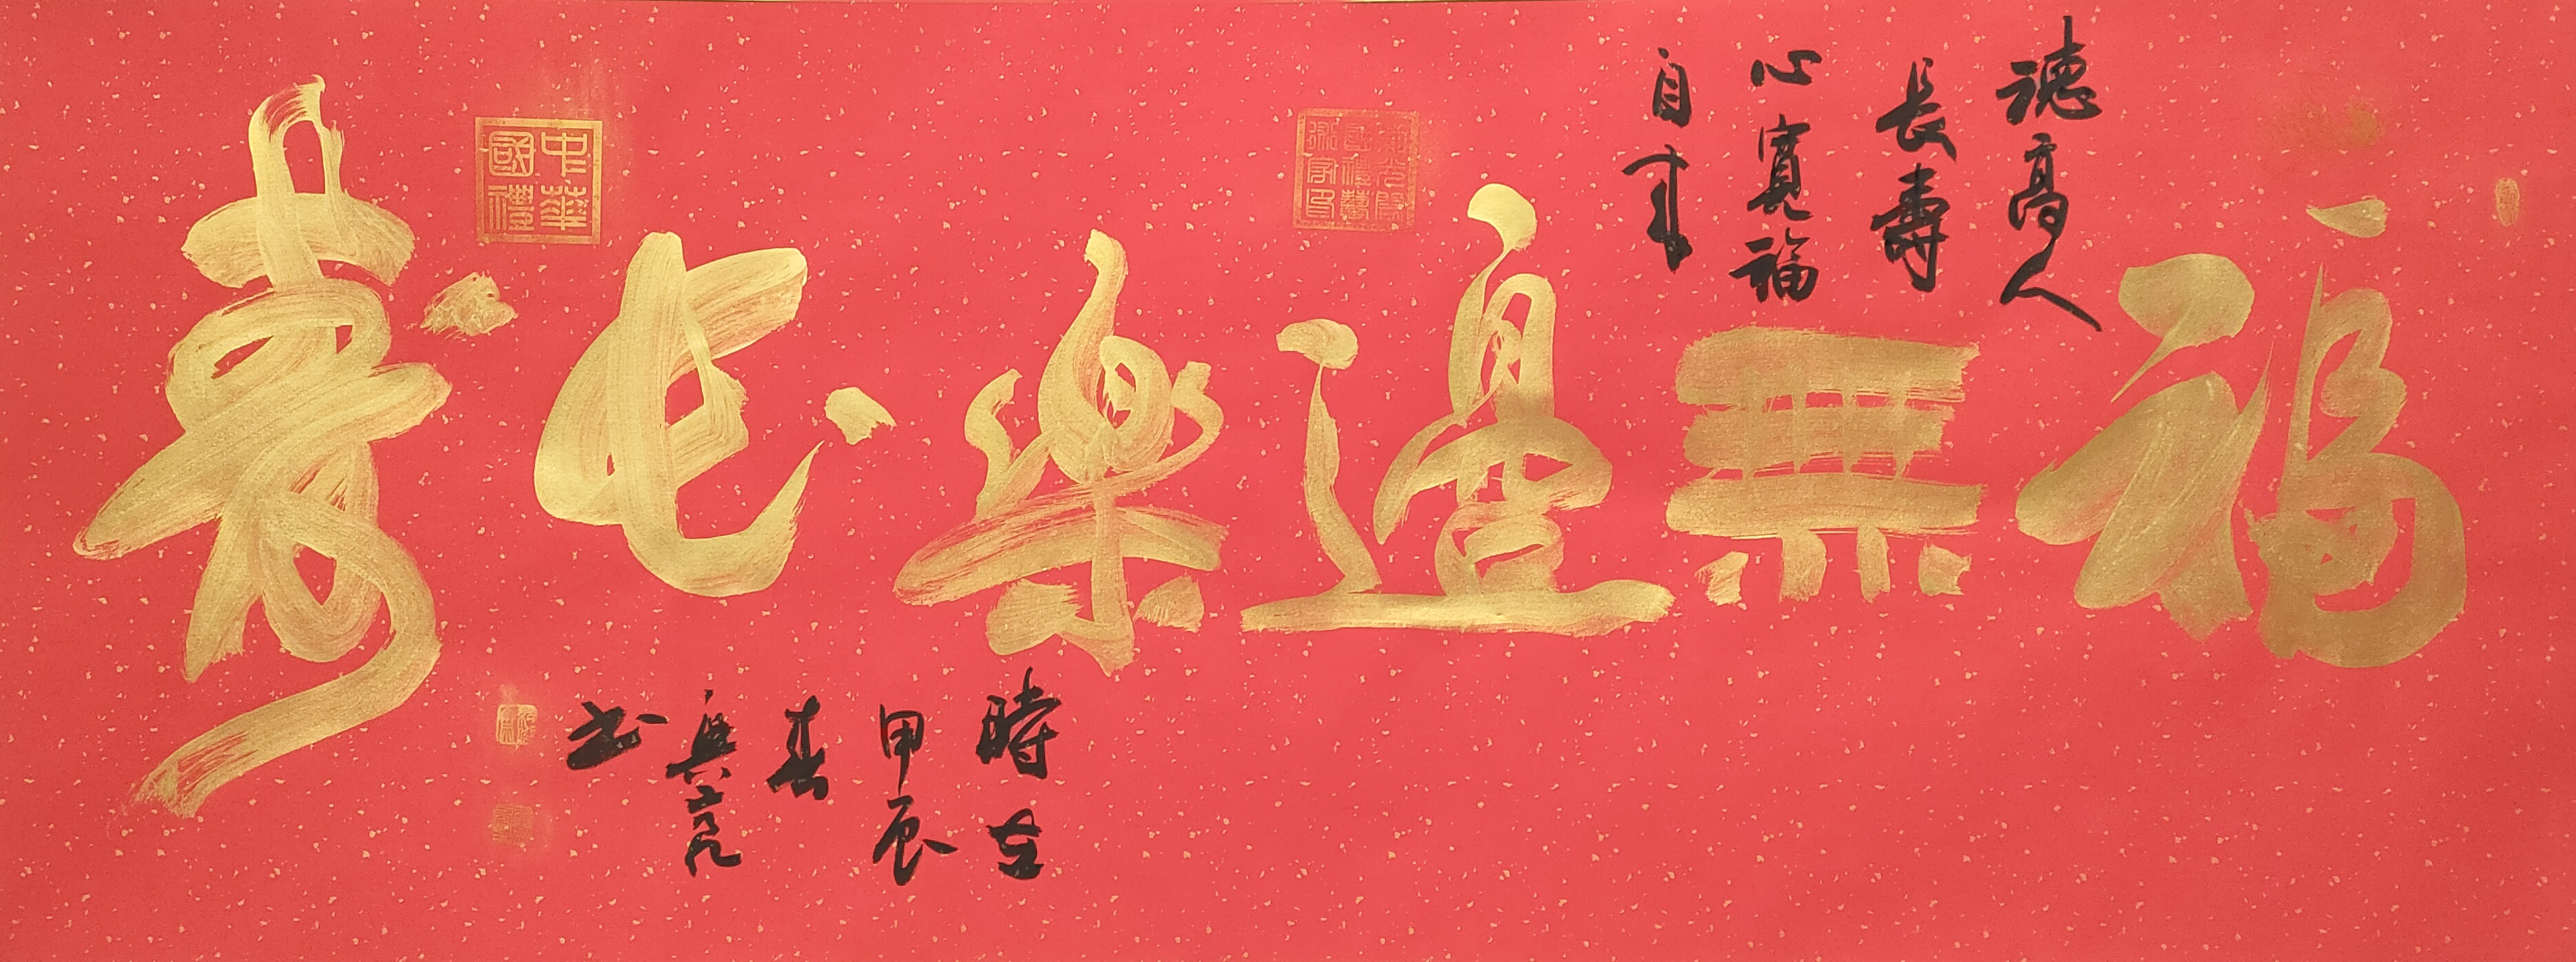 福無邊樂長壽
德高人
長壽
心寬福
自來
時在
甲辰
春
興亮
书
中華
國禮